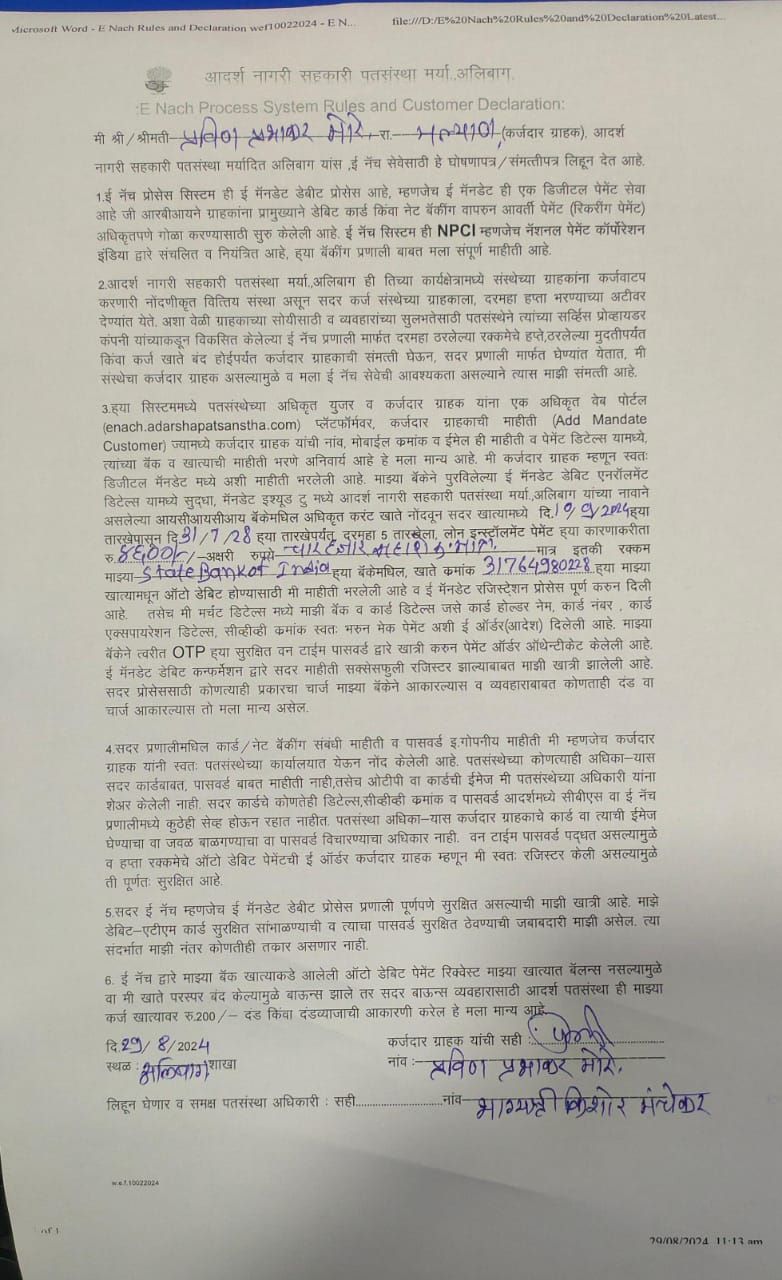 Microsoft Word - E Nach Rules and Declaration wef10022024 - E N... file:///D:/E%20Nach%20Rules%20and%20Declaration%20Latest...
आदर्श नागरी सहकारी पतसंस्था मर्या.,अलिबाग.
:E Nach Process System Rules and Customer Declaration:
मी श्री/श्रीमती- प्रविण प्रभाकर मोरे. रा.- (कर्जदार ग्राहक), आदर्श
नागरी सहकारी पतसंस्था मर्यादित अलिबाग यांस ,ई नॅच सेवेसाठी हे घोषणापत्र/संमत्तीपत्र लिहून देत आहे.
1.ई नॅच प्रोसेस सिस्टम ही ई मॅनडेट डेबीट प्रोसेस आहे, म्हणजेच ई मॅनडेट ही एक डिजीटल पेमेंट सेवा
आहे जी आरबीआयने ग्राहकांना प्रामुख्याने डेबिट कार्ड किंवा नेट बॅकींग वापरुन आवर्ती पेमेंट (रिकरींग पेमेंट)
अधिकृतपणे गोळा करण्यासाठी सुरु केलेली आहे. ई नॅच सिस्टम ही NPCI म्हणजेच नॅशनल पेमेंट कॉर्पोरेशन
इंडिया द्वारे संचलित व नियंत्रित आहे, ह्या बॅकींग प्रणाली बाबत मला संपूर्ण माहीती आहे.
2.आदर्श नागरी सहकारी पतसंस्था मर्या.,अलिबाग ही तिच्या कार्यक्षेत्रामध्ये संस्थेच्या ग्राहकांना कर्जवाटप
करणारी नोंदणीकृत वित्तिय संस्था असून सदर कर्ज संस्थेच्या ग्राहकाला, दरमहा हप्ता भरण्याच्या अटीवर
देण्यांत येते. अशा वेळी ग्राहकाच्या सोयीसाठी व व्यवहारांच्या सुलभतेसाठी पतसंस्थेने त्यांच्या सर्व्हिस प्रोव्हायडर
कंपनी यांच्याकडून विकसित केलेल्या ई नॅच प्रणाली मार्फत दरमहा ठरलेल्या रक्कमेचे हप्ते,ठरलेल्या मुदतीपर्यत
किंवा कर्ज खाते बंद होईपर्यत कर्जदार ग्राहकाची संमत्ती घेऊन, सदर प्रणाली मार्फत घेण्यांत येतात, मी
संस्थेचा कर्जदार ग्राहक असल्यामुळे व मला ई नॅच सेवेची आवश्यकता असल्याने त्यास माझी संमत्ती आहे.
3.हया सिस्टममध्ये पतसंस्थेच्या अधिकृत युजर व कर्जदार ग्राहक यांना एक अधिकृत वेब पोर्टल
(enach.adarshapatsanstha.com) प्लॅटफॉर्मवर, कर्जदार ग्राहकाची माहीती (Add Mandate
Customer) ज्यामध्ये कर्जदार ग्राहक यांची नांव, मोबाईल क्रमांक व ईमेल ही माहीती व पेमेंट डिटेल्स यामध्ये,
त्यांच्या बॅक व खात्याची माहीती भरणे अनिवार्य आहे हे मला मान्य आहे. मी कर्जदार ग्राहक म्हणून स्वतः
डिजीटल मॅनडेट मध्ये अशी माहीती भरलेली आहे. माझ्या बॅकेने पुरविलेल्या ई मॅनडेट डेबिट एनरॉलमेंट
डिटेल्स यामध्ये सुद्धा, मॅनडेट इश्यूड टु मध्ये आदर्श नागरी सहकारी पतसंस्था मर्या.,अलिबाग यांच्या नावाने
असलेल्या आयसीआयसीआय बॅकेमधिल अधिकृत करंट खाते नोंदवून सदर खात्यामध्ये दि. 10/9/2024 ह्या
तारखेपासून दि 31/7/28 ह्या तारखेपर्यत, दरमहा 5 तारखेला, लोन इन्स्टॉलमेंट पेमेंट ह्या कारणाकरीता
रु. /-अक्षरी रुपये- मात्र इतकी रक्कम
माझ्या- State Bank of India ह्या बॅकेमधिल, खाते क्रमांक 31764980228 ह्या माझ्या
खात्यामधून ऑटो डेबिट होण्यासाठी मी माहीती भरलेली आहे व ई मॅनडेट रजिस्ट्रेशन प्रोसेस पूर्ण करुन दिली
आहे. तसेच मी मर्चंट डिटेल्स मध्ये माझी बॅक व कार्ड डिटेल्स जसे कार्ड होल्डर नेम, कार्ड नंबर , कार्ड
एक्सपायरेशन डिटेल्स, सीव्हीव्ही क्रमांक स्वतः भरुन मेक पेमेंट अशी ई ऑर्डर(आदेश) दिलेली आहे. माझ्या
बॅकेने त्वरीत OTP ह्या सुरक्षित वन टाईम पासवर्ड द्वारे खात्री करुन पेमेंट ऑर्डर ऑथेन्टीकेट केलेली आहे.
ई मॅनडेट डेबिट कन्फर्मेशन द्वारे सदर माहीती सक्सेसफुली रजिस्टर झाल्याबाबत माझी खात्री झालेली आहे.
सदर प्रोसेससाठी कोणत्याही प्रकारचा चार्ज माझ्या बॅकेने आकारल्यास व व्यवहाराबाबत कोणताही दंड वा
चार्ज आकारल्यास तो मला मान्य असेल.
4.सदर प्रणालीमधिल कार्ड/नेट बॅकींग संबंधी माहीती व पासवर्ड इ.गोपनीय माहीती मी म्हणजेच कर्जदार
ग्राहक यांनी स्वतः पतसंस्थेच्या कार्यालयात येऊन नोंद केलेली आहे. पतसंस्थेच्या कोणत्याही अधिका-यास
सदर कार्डबाबत, पासवर्ड बाबत माहीती नाही,तसेच ओटीपी वा कार्डची ईमेज मी पतसंस्थेच्या अधिकारी यांना
शेअर केलेली नाही. सदर कार्डचे कोणतेही डिटेल्स,सीव्हीव्ही क्रमांक व पासवर्ड आदर्शमध्ये सीबीएस वा ई नॅच
प्रणालीमध्ये कुठेही सेव्ह होऊन रहात नाहीत. पतसंस्था अधिका-यास कर्जदार ग्राहकाचे कार्ड वा त्याची ईमेज
घेण्याचा वा जवळ बाळगण्याचा वा पासवर्ड विचारण्याचा अधिकार नाही. वन टाईम पासवर्ड पद्धत असल्यामुळे
व हप्ता रक्कमेचे ऑटो डेबिट पेमेंटची ई ऑर्डर कर्जदार ग्राहक म्हणून मी स्वतः रजिस्टर केली असल्यामुळे
ती पूर्णतः सुरक्षित आहे.
5.सदर ई नॅच म्हणजेच ई मॅनडेट डेबीट प्रोसेस प्रणाली पूर्णपणे सुरक्षित असल्याची माझी खात्री आहे. माझे
डेबिट-एटीएम कार्ड सुरक्षित सांभाळण्याची व त्याचा पासवर्ड सुरक्षित ठेवण्याची जबाबदारी माझी असेल. त्या
संदर्भात माझी नंतर कोणतीही तकार असणार नाही.
6. ई नॅच द्वारे माझ्या बॅक खात्याकडे आलेली ऑटो डेबिट पेमेंट रिक्वेस्ट माझ्या खात्यात बॅलन्स नसल्यामुळे
वा मी खाते परस्पर बंद केल्यामुळे बाऊन्स झाले तर सदर बाऊन्स व्यवहारासाठी आदर्श पतसंस्था ही माझ्या
कर्ज खात्यावर रु.200/- दंड किंवा दंडव्याजाची आकारणी करेल हे मला मान्य आहे.
दि.29/8/2024 कर्जदार ग्राहक यांची सही :
स्थळ : अलिबाग शाखा नांव :- प्रविण प्रभाकर मोरे.
लिहून घेणार व समक्ष पतसंस्था अधिकारी : सही............................नांव भाग्यश्री किशोर मंचेकर
w.e.f.10022024
1 of 1 29/08/2024, 11:13 am